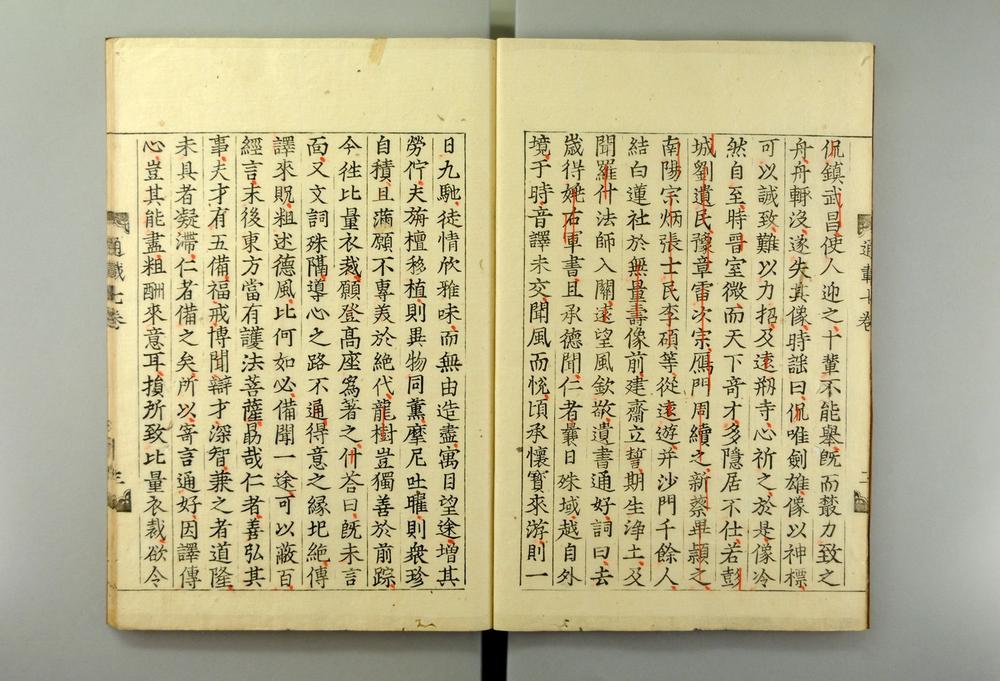 侃鎮武昌使人迎之十輩不能舉既而藂力致之
舟舟輒沒遂失其像時謡曰侃唯劍雄像以神標
可以誠致難以力招及遠剏寺心祈之於是像冷
然自至時晋室微而天下奇才多隱居不仕若彭
城劉遺民豫章雷次宗鴈門周續之新蔡畢頴之
南陽宗炳張士民李碩等從遠遊并沙門千餘人
結白蓮社於無量壽像前建齋立誓期生浄土及
聞羅什法師入關遠望風欽敬遺書通好詞曰去
歳得姚右軍書且承德聞仁者曩日殊域越自外
境于時音譯未交聞風而恱頃承懷寳來游則一
日九馳徒情欣雅味而無由造盡寓目望途增其
勞佇夫旃檀移植則異物同薰摩尼吐曜則衆珍
自積且滿願不專羙於絶代龍樹豈獨善於前踪
今徃比量衣裁願登髙座爲著之什荅曰既未言
面又文詞殊隔導心之路不通得意之縁圯絶傳
譯來貺粗述德風比何如必備聞一途可以蔽百
經言末後東方當有護法菩薩勗哉仁者善弘其
事夫才有五備福戒博聞辯才深智兼之者道隆
未具者凝滯仁者備之矣所以寄言通好因譯傳
心豈其能盡粗酬來意耳損所致比量衣裁欲令
通載七卷
二
通載七卷
三